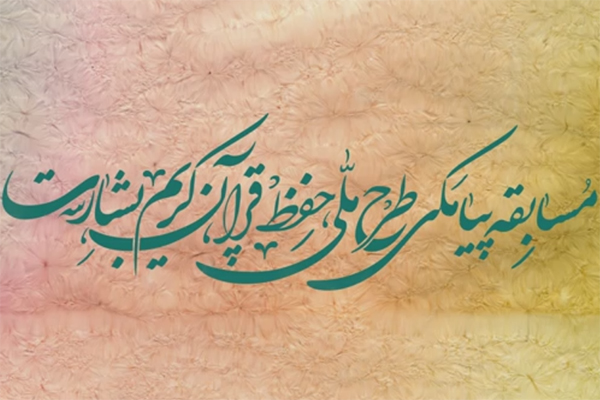 مسابقه پیامکی طرح ملّی حفظ قرآن کریم بشارت